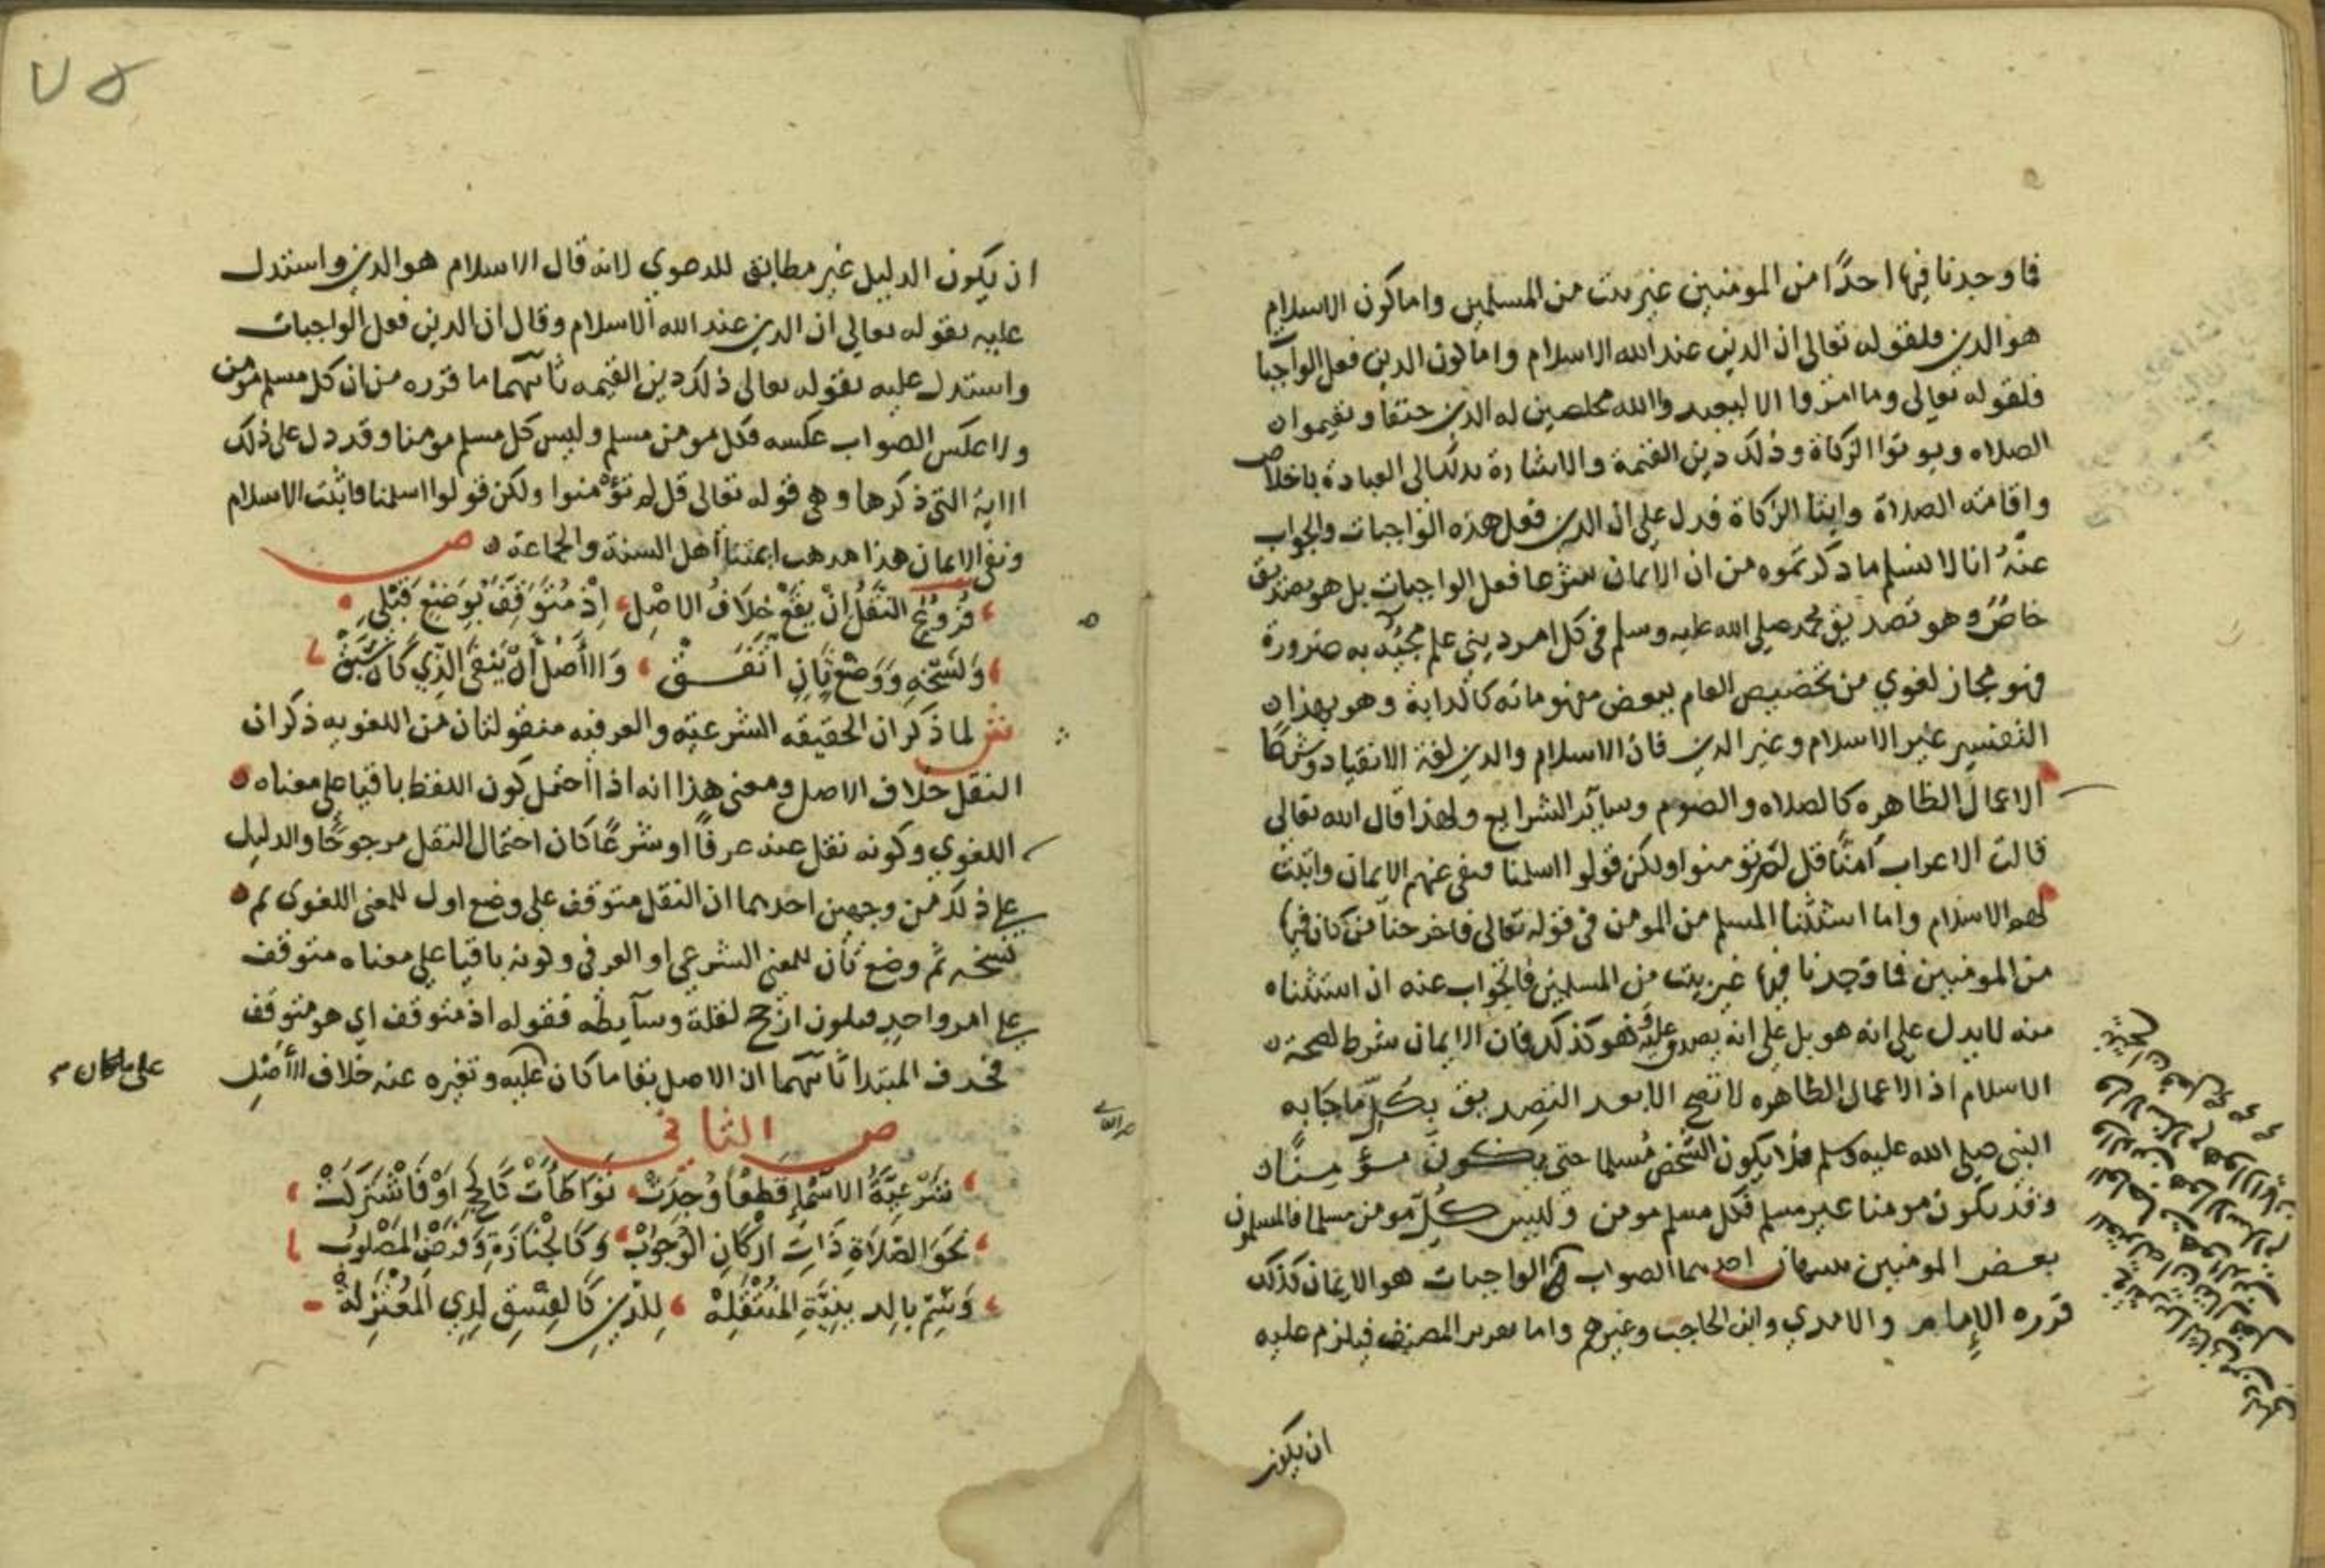 فما وجدنا فيها احدًا من المومنين غير بيت من المسلمين واما كون الاسلام
هو الدين فلقوله تعالى ان الدين عند الله الاسلام واما كون الدين فعل الواجبات
فلقوله تعالى وما امروا الا ليعبدوا الله مخلصين له الدين حنفا ويقيموا
الصلاه ويوتوا الزكاة وذلك دين القيمة والاشارة بذلك الى العبادة باخلاص
واقامة الصلاة وايتا الزكاة فدل على ان الدين فعل هذه الواجبات والجواب
عنه انا لا نسلم ما ذكرتموه من ان الايمان شرعا فعل الواجبات بل هو تصديق
خاص وهو تصديق محمد صلى الله عليه وسلم في كل امر ديني علم مجيئه به ضرورة
فهو مجاز لغوي من تخصيص العام ببعض مفهوماته كالدابة وهو بهذا
التفسير غير الاسلام وغير الدين فان الاسلام والدين لغة الانقياد وشرعًا
الاعمال الظاهره كالصلاه والصوم وساير الشرايع ولهذا قال الله تعالى
قالت الاعراب آمنّا قل لم تومنوا ولكن قولوا اسلمنا فنفى عنهم الايمان واثبت
لهم الاسلام واما استثنا المسلم من المومن في قوله تعالى فاخرجنا من كان فيها
من المومنين فما وجدنا فيها غير بيت من المسلمين فالجواب عنه ان استثناه
منه لا يدل على انه هو بل على انه يصدق عليه وهو كذلك فان الايمان شرط لصحة
الاسلام اذ الاعمال الظاهره لا تصح الا بعد التصديق بكل ما جا به
النبي صلى الله عليه وسلم فلا يكون الشخص مسلما حتى يكون مؤمنًا
وقد يكون مومنا غير مسلم فكل مسلم مومن وليس كل مومن مسلما فالمسلمون
بعض المومنين احدهما الصواب ان الواجبات هو الايمان كذلك
قرره الإمام والامدي وابن الحاجب وغيرهم واما تقرير المصنف فيلزم عليه
ان يكون
٧٥
ان يكون الدليل غير مطابق للدعوي لانه قال الاسلام هو الدين واستدل
عليه بقوله تعالى ان الدين عند الله الاسلام وقال ان الدين فعل الواجبات
واستدل عليه بقوله تعالى ذلك دين القيمه ثانيهما ما قرره من ان كل مسلم مومن
ولا عكس الصواب عكسه فكل مومن مسلم وليس كل مسلم مومنا وقد دل على ذلك
الاية التي ذكرها وهي قوله تعالى قل لم تؤمنوا ولكن قولوا اسلمنا فاثبت الاسلام
ونفى الايمان هذا مذهب ايمتنا اهل السنة والجماعة ص
فُرُوعُ النقْلُ انْ يقَعْ خِلَافُ الاصْلِ اِذْ مُتَوَقِفٌ بِوَضْعٍ قَبْلِي
وَنَسْخِهِ وَوَضْعِ ثَانٍ اتَّفَقْ وَالْأَصْلُ أَنْ يَبْقَى الَّذِي كَانَ سَبَقْ
ش لما ذكر ان الحقيقه الشرعيّه والعرفيه منقولتان من اللغويه ذكر ان
النقل خلاف الاصل ومعنى هذا انه اذا احتمل كون اللفظ باقيا على معناه
اللغوي وكونه نقل عنه عرفًا او شرعًا كان احتمال النقل مرجوحًا والدليل
على ذلك من وجهين احدهما ان النقل متوقف على وضع اول للمعنى اللغوى ثم
نسخه ثم وضع ثان للمعنى الشرعي او العرفي وكونه باقيا على معناه متوقف
على امر واحد فيكون ارجح لقلة وسايطه فقوله اذ متوقف اي هو متوقف
فحذف المبتدا ثانيهما ان الاصل بقا ما كان عليه وتغيره عنه خلاف الأصل
على ما كان
ص الثاني
شَرْعِيَّةُ الاسْمَاءِ قَطْعًا وُجِدَتْ تَوَاطَأَتْ كَالحَجِّ اَوْ فَاشْتَرَكَتْ
نَحْوَ الصَّلَاةِ ذَاتِ ارْكَانِ الْوُجُوْبْ وَكَالْجَنَازَةِ وَفَرْضِ الْمَصْلُوبْ
وَسَمِّ بِالدِينِيَّةِ الْمُنْتَقِلَهْ لِلدِّينِ كَالْفِسْقِ لَدِي الْمُعْتَزِلَهْ